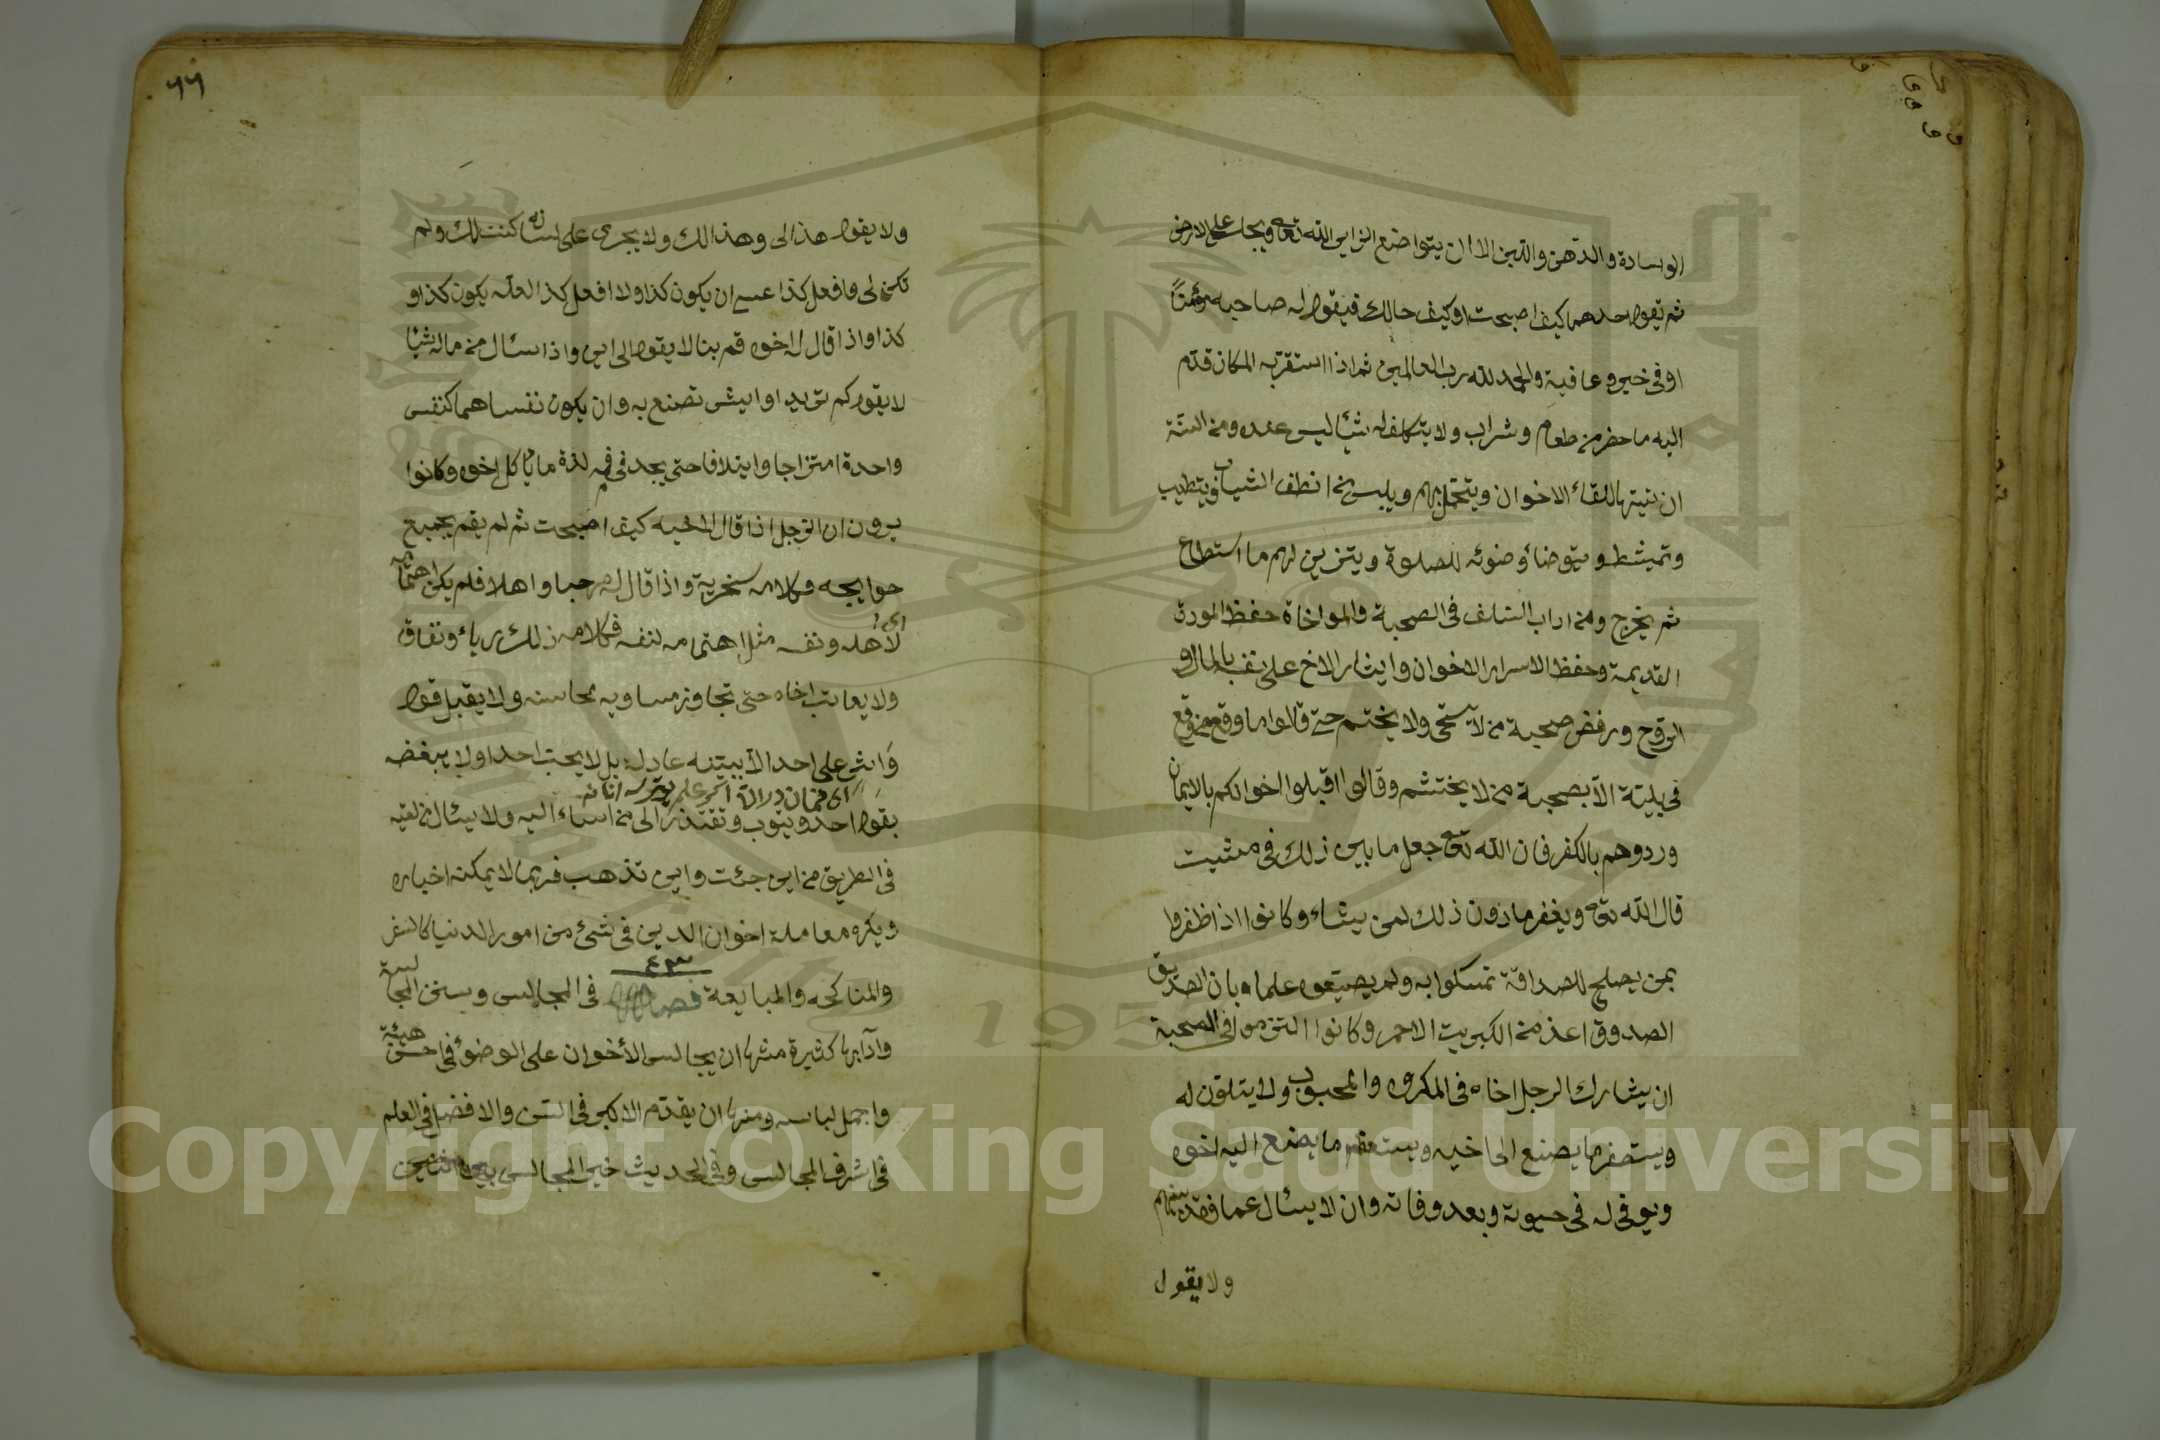 الوسادة والدهن واللبن الا ان يتواضع الزاير لله تعالى ويجلس على الارض
ثم يقول احدهما كيف اصبحت او كيف حالك فيقول له صاحبه مؤمنا
او في خير وعافية والحمد لله رب العالمين ثم اذا استقر به المكان قدم
اليه ما حضر من طعام وشراب ولا يتكلف له شيئا ليس عنده ومن السنة
ان يتهيا للقاء الاخوان ويتجمل لهم ويلبس من انظف الثياب ويتطيب
وتمشط ويتوضأ وضوئه للصلوة ويتزين لهم ما استطاع
ثم يخرج ومن اداب السلف في الصحبة والمواخاة حفظ المودة
القديمة وحفظ الاسرار الاخوان وايثار الاخ على نفسه بالمال و
الروح ورفض صحبة من لا يستحى ولا يختشم حتى قالوا ما وقع من وقع
في بلية الا بصحبة من لا يختشم وقالوا اقبلوا اخوانكم بالايمان
وردوهم بالكفر فان الله تعالى جعل ما بين ذلك في مشيت
قال الله تعالى ويغفر مادون ذلك لمن يشاء وكانوا اذا ظفروا
بمن يصلح للصداقة تمسكوا به ولم يضيعوه علما بان الصديق
الصدوق اعز من الكبريت الاحمر وكانوا التزموا في الصحبة
ان يشارك الرجل اخاه في المكروه والمحبوب ولا يتلون له
ويستصغر ما يصنع الى اخيه ويستعظم ما يصنع اليه اخوه
ويوفى له في حيوته وبعد وفاته وان لا يسئال عما فقد
ولا يقول
٦٦
ولا يقول هذا لى وهذا لك ولا يجرى على لسانه كنت لك ولم
تكن لى وافعل كذا عسى ان يكون كذا ولا افعل كذا لعله يكون كذا و
كذا واذا قال له اخوه قم بنا لا يقول الى اين واذا سئال من ماله شيئا
لا يقول كم تريد او ايش تصنع به وان يكون نفساهما كنفس
واحدة امتزاجا وايتلافا حتى يجد في فمه لذة ما ياكل اخوه وكانوا
يرون ان الرجل اذا قال لاخيه كيف اصبحت ثم لم يقم بجميع
حوايجه فكلامه سخرية واذا قال له مرحبا واهلا فلم يكن اهتمامه
لاهله ونفسه مثل اهتمامه لنفسه فكلامه ذلك رياء ونفاق
ولا يعاتب اخاه حتى تجاوز مساويه محاسنه ولا يقبل قول
واش على احد الا ببينة عادلة بل لا يحب احدا ولا يبغضه
بقول احد ويتوب وتعتذر الى من اساء اليه ولا يسئال من لقيه
في الطريق من اين جئت واين تذهب فربما لا يمكنه اخباره
ويكره معاملة اخوان الدين في شئ من امور الدنيا كالسفر
والمناكحه والمبايعة فصل في المجالس وسنن المجالسة
وآدابها كثيرة منها ان يجالس الأخوان على الوضوء في احسن هيئة
واجمل لباسه ومنها ان يقدم الاكبر في السن والافضل في العلم
في اشرف المجالس وفي الحديث خير المجالس
Copyright © King Saud University